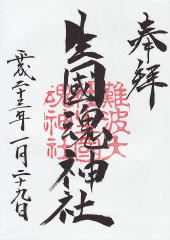 奉拝
生國魂神社
平成二十三年一月二十九日
難波大
社生國
魂神社